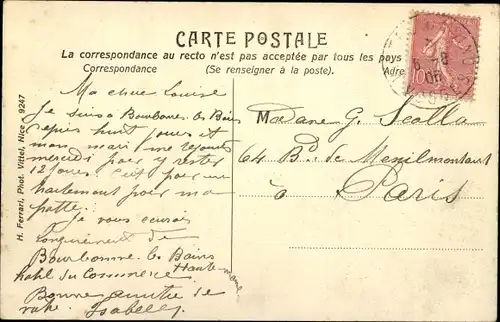 CARTE POSTALE
La correspondance au recto n'est pas acceptée par tous les pays
Correspondance
(Se renseigner à la poste).
Adre
H. Ferrari, Phot. Vittel, Nice 9247
10
Ma chere Louise
Je suis a Bourbonne les Bains
depuis huit jours et
mon mari me rejoint
mercredi pour y rester
12 jours c'est pour un
traitement pour ma
patte.
Je vous ecrirais
longuement de
Bourbonne les Bains
hotel du Commerce
Haute-marne
Bonne amitie de
votre Isabelle
Madame G. Scolla
64 Bd. de Menilmontant
à Paris